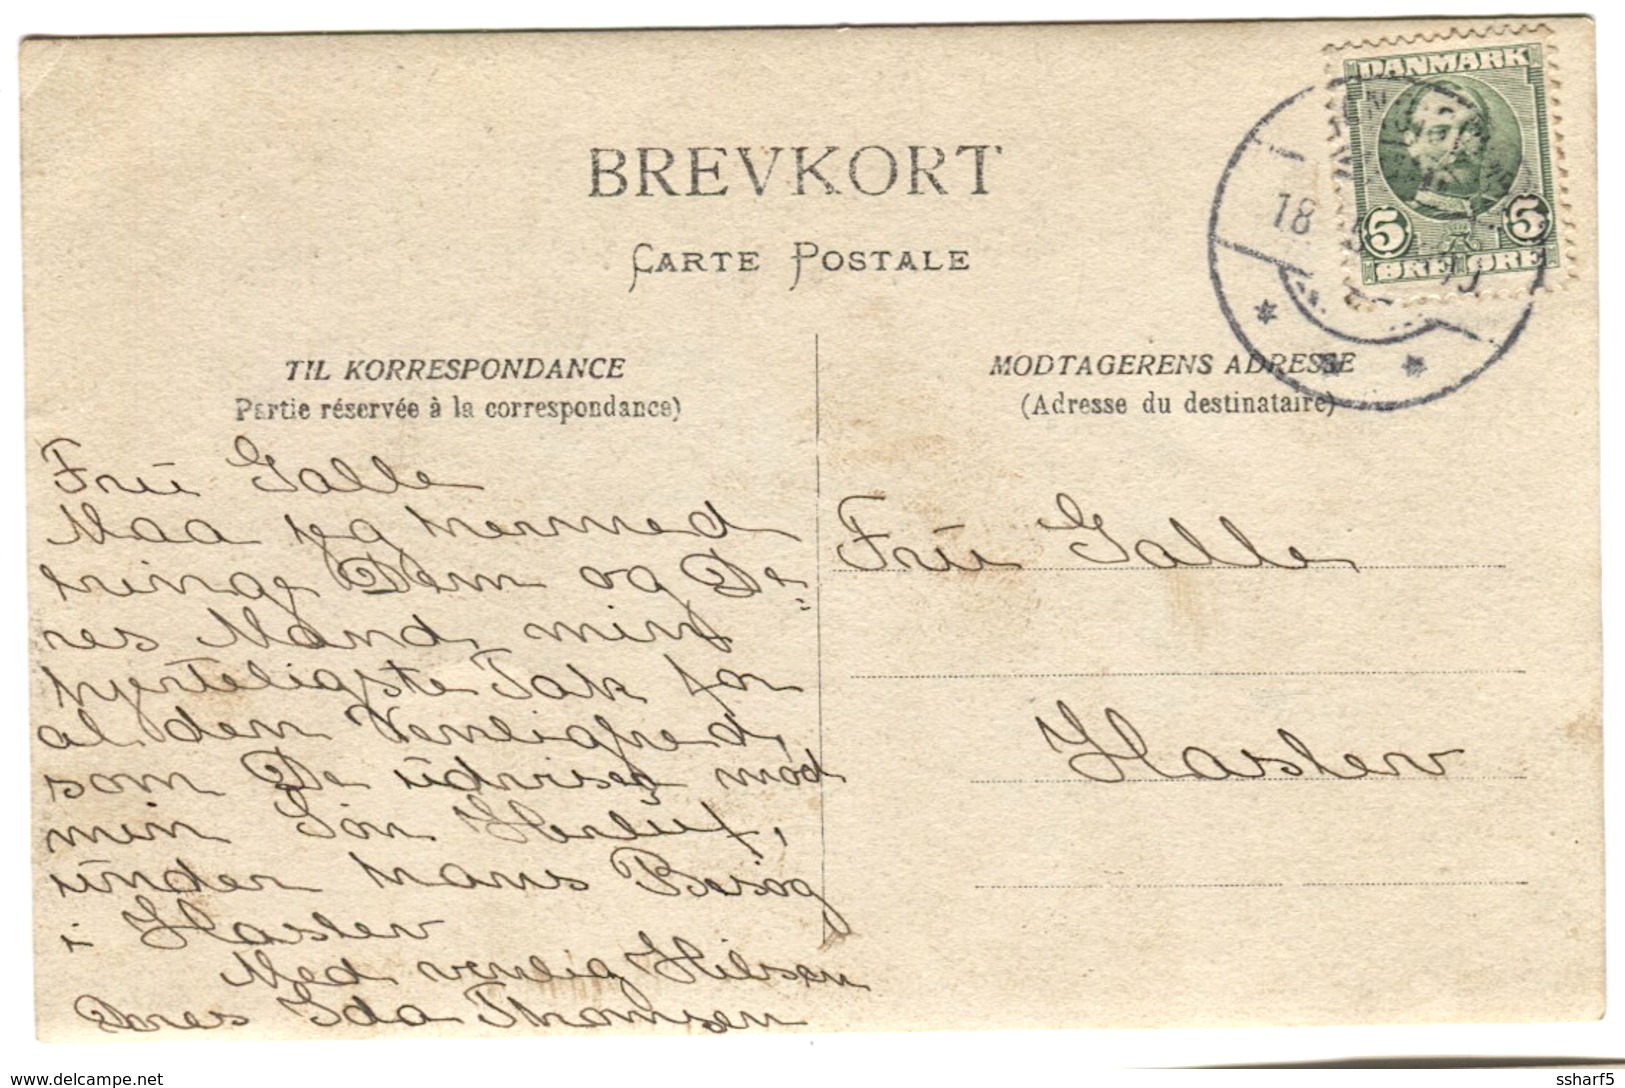 BREVKORT
CARTE POSTALE
DANMARK
5 5
ØRE ØRE
18
TIL KORRESPONDANCE
Partie réservée à la correspondance)
MODTAGERENS ADRESSE
(Adresse du destinataire)
Frü Galle
Maa jeg hermed
bringe Dem og De-
res Mand, min
hjerteligste Tak for
al den Venlighed,
som De üdviser mod
min Søn Herlüf,
ünder hans Besøg
i Haslev
Med venlig Hilsen
Deres Ida Thomsen
Frü Galle
Haslev
www.delcampe.net
ssharf5